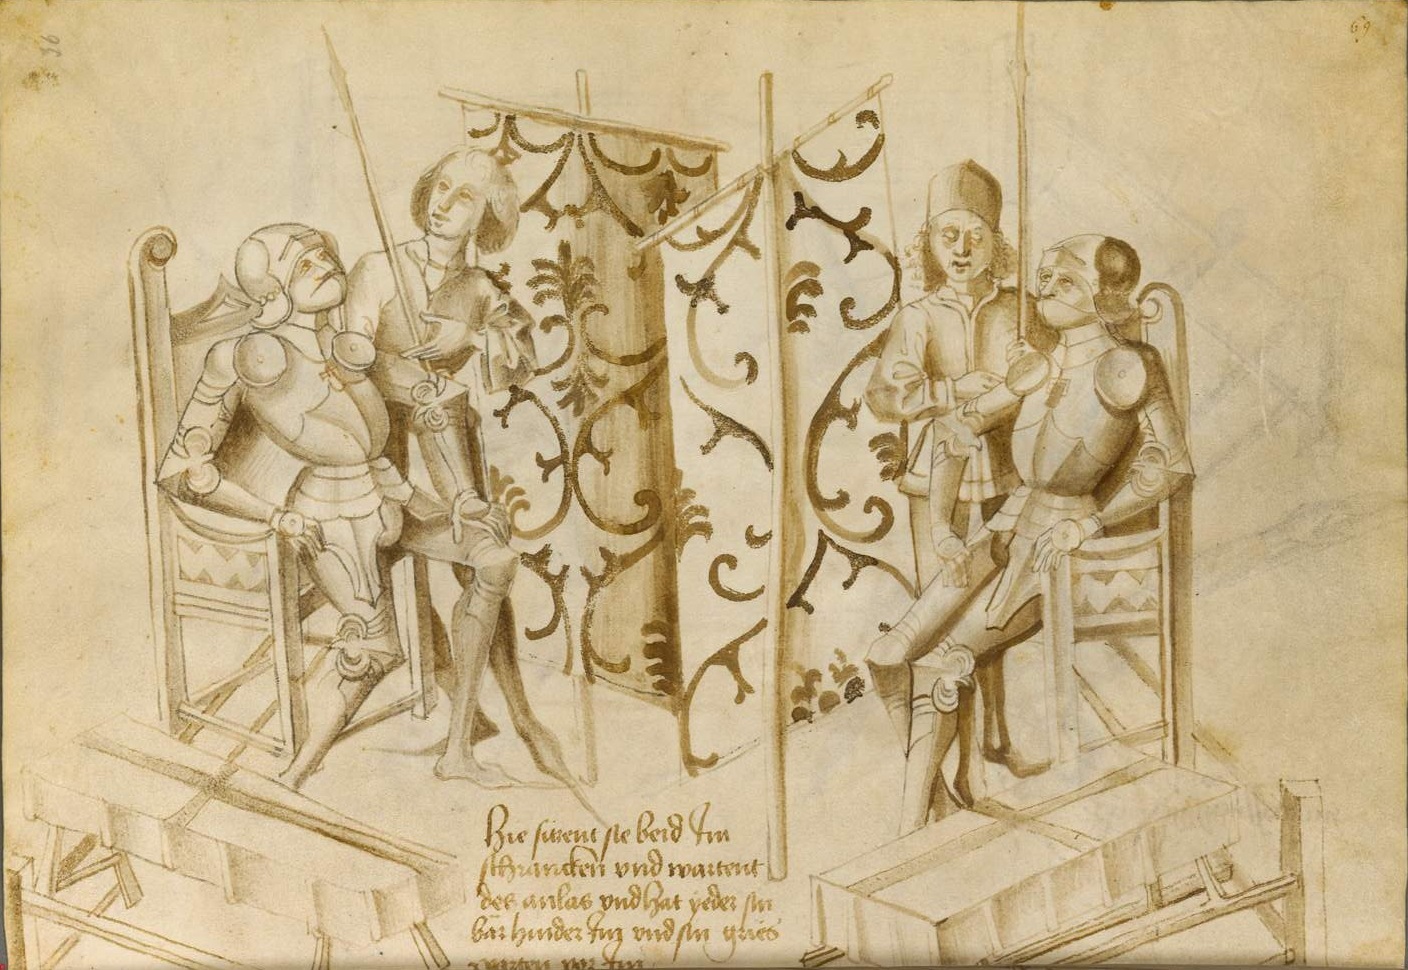 69
Hie sitzent sie beid Im
schrancken vnd wartent
des anlas vnd hat yeder sin
bär hinder Im vnd sin gries
warten vor Im